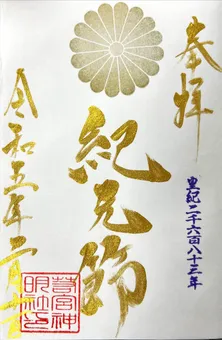 奉拝
皇紀二千六百八十三年
紀元節
令和五年二月
宮神
明社印